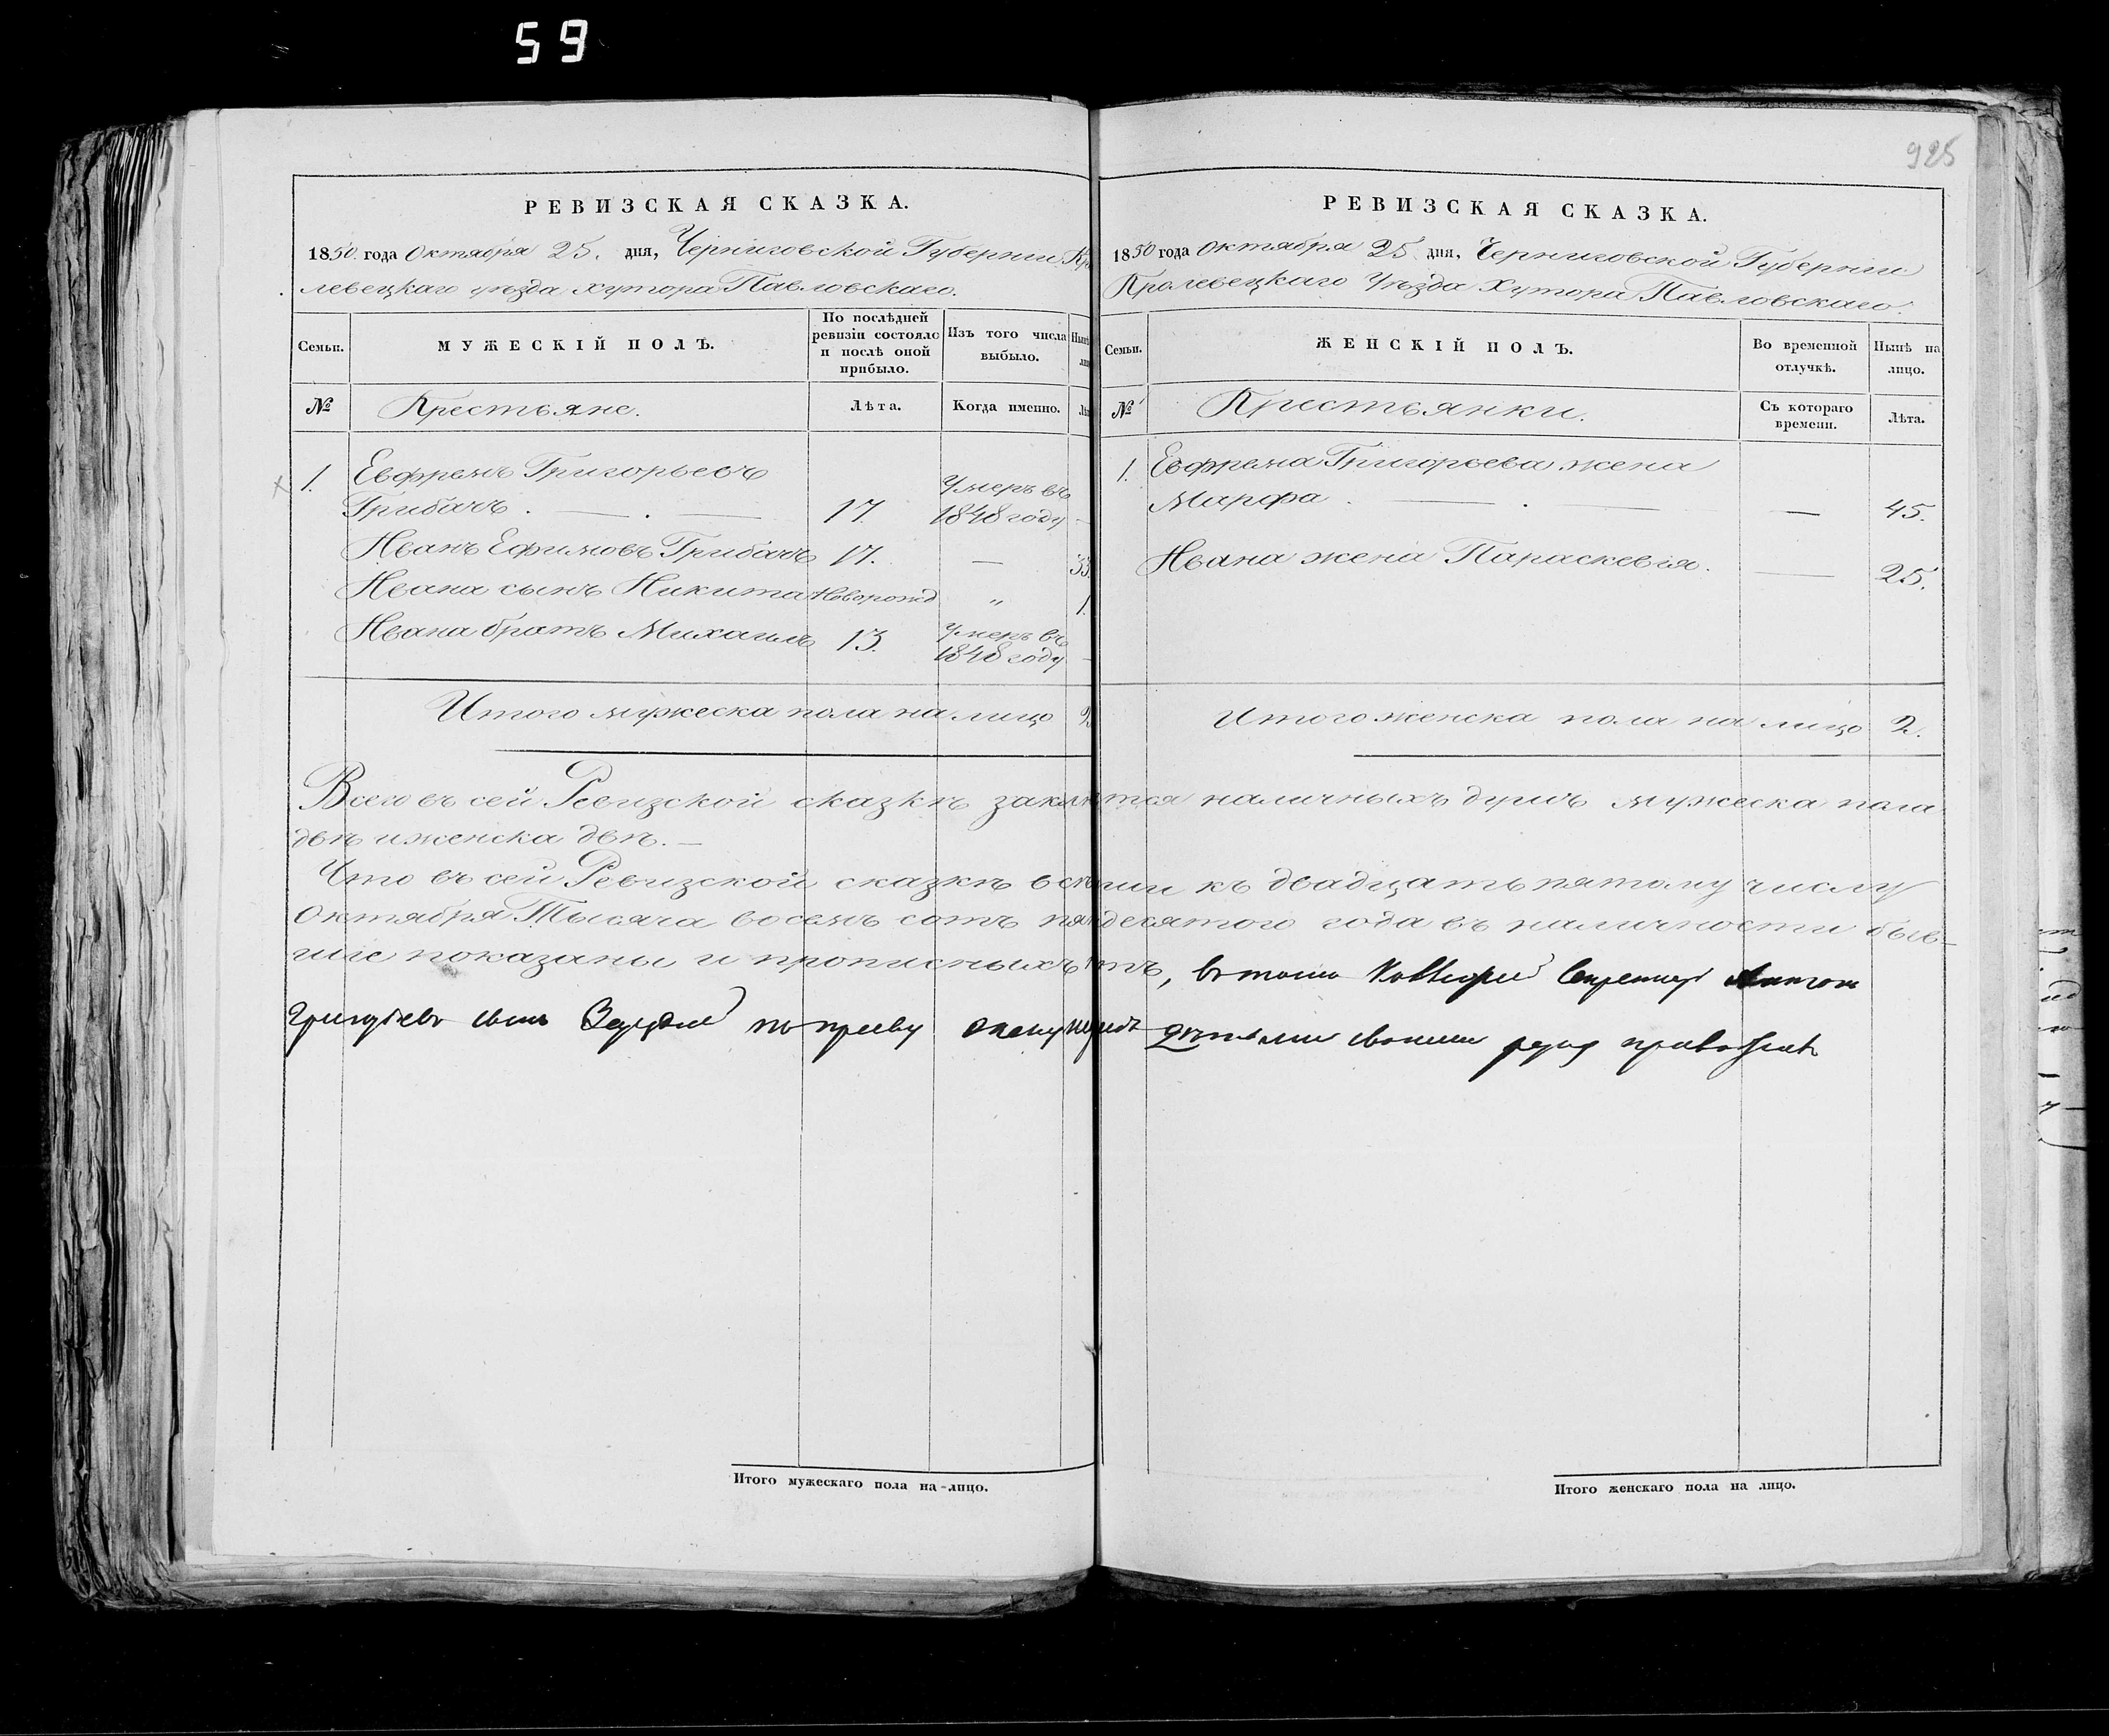 59
925
РЕВИЗСКАЯ СКАЗКА.
1850 года Октября 25. дня, Черниговской Губернии Кро
левецкаго уѣзда хутора Павловскаго.
Семьи.
МУЖЕСКІЙ ПОЛЪ.
По послѣдней
ревизіи состояло
и послѣ оной
прибыло.
Изъ того числа
выбыло.
№
Крестьяне.
Лѣта.
Когда именно.
1. Евфремъ Григорьевъ
Грибачъ . — . — 17. Умеръ въ 1848 году —
Иванъ Ефимовъ Грибачъ 17. — 33.
Ивана сынъ Никита Новорожд „ 1.
Ивана братъ Михаилъ 13. Умеръ въ 1848 году —
Итого мужеска пола на лицо 2.
РЕВИЗСКАЯ СКАЗКА.
1850 года Октября 25 дня, Черниговской Губерніи
Кролевецкаго Уѣзда Хутора Павловскаго.
Семьи.
ЖЕНСКІЙ ПОЛЪ.
Во временной
отлучкѣ.
Нынѣ на
лицо.
№
Крестьянки.
Съ котораго
времени.
Лѣта.
1. Евфрема Григорьева жена
Марфа . — . — — 45.
Ивана жена Параскевія. — 25.
Итого женска пола на лицо 2.
Всего въ сей Ревизской сказкѣ наличныхъ душъ мужеска пола
двѣ и женска двѣ. —
Что въ сей Ревизской сказкѣ всѣ къ двадцать пятому числу
Октября Тысяча восемъ сотъ пядесятого года въ наличности быв-
шіе показаны и прописныхъ нѣтъ, въ томъ Секретарь Антонъ
Григорьевъ сынъ по праву дѣтьми своими руку приложилъ
Итого мужескаго пола на-лицо.
Итого женскаго пола на лицо.